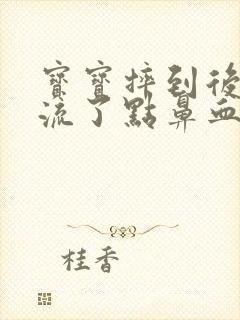 寶寶摔到後
流了點鼻血
桂香